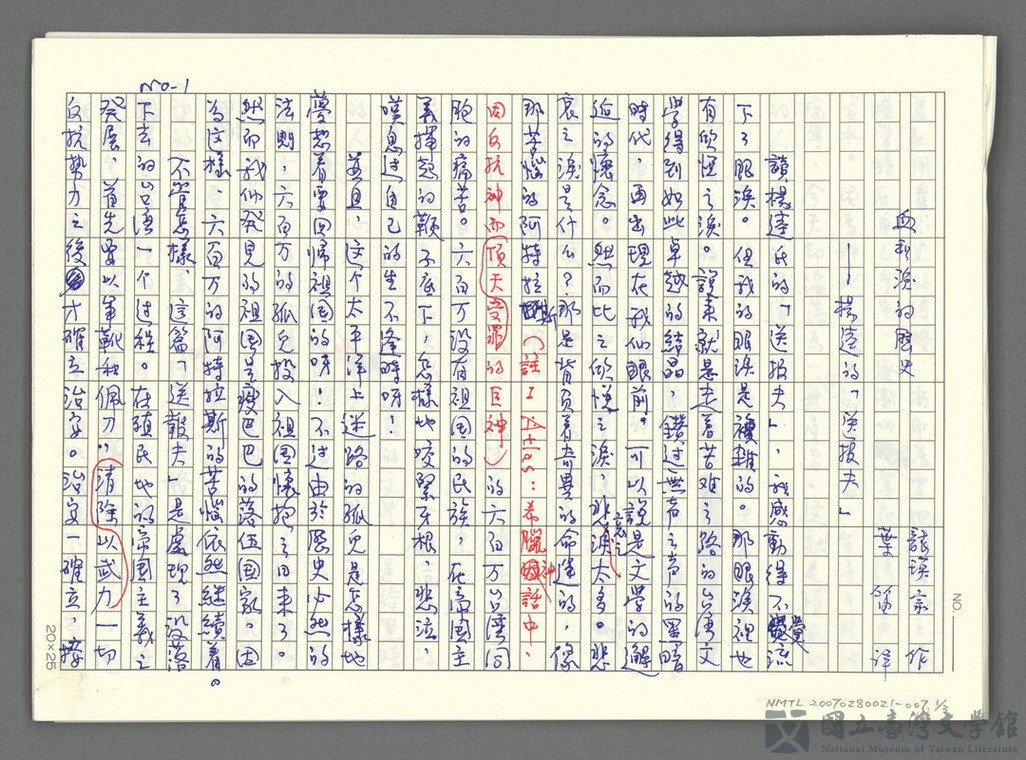 血和淚的歷史
——楊逵的「送报夫」
葉笛 译
讀楊逵氏的「送报夫」,我感動得不覺流
下了眼淚。但我的眼淚是複雜的。那眼淚裡也
有欣悅之淚。說來就是走着苦难之路的台湾文
學得到如此卓越的結晶,鑽过無声之声的黑暗
時代,而出現在我们眼前。可以說是文學的邂
逅的懷念。然而比之欣悅之淚,悲哀之淚太多。悲
哀之淚是什么?那是背負着奇異的命運的,像
那苦惱的阿特拉斯(註1 Atlas:希臘神話中,
因反抗神而頂天受罪的巨神)的六百万台湾同
胞的痛苦。六百万没有祖国的民族,在帝国主
義揮起的鞭子底下,怎樣地咬緊牙根,悲泣,
嘆息过自己的生不逢時呀!
並且,这个太平洋上迷路的孤兒是怎樣地
夢想着要回歸祖国的呀!不过由於歷史必然的
法則,六百万的孤兒投入祖国懷抱之日来了。
然而我们発見的祖国是瘦巴巴的落伍国家。因
為这樣,六百万的阿特拉斯的苦惱依然継續着。
不管怎樣,這篇「送報夫」是處理了没落
下去的台湾一个过程。在殖民地的帝国主義之
発展,首先是以軍靴和佩刀,清除以武力一切
反抗勢力之後才確立治安。治安一確立,接
No-1
20×25
NO.
NMTL 20070280021-007 1/3
國立臺灣文學館
National Museum of Taiwan Literature